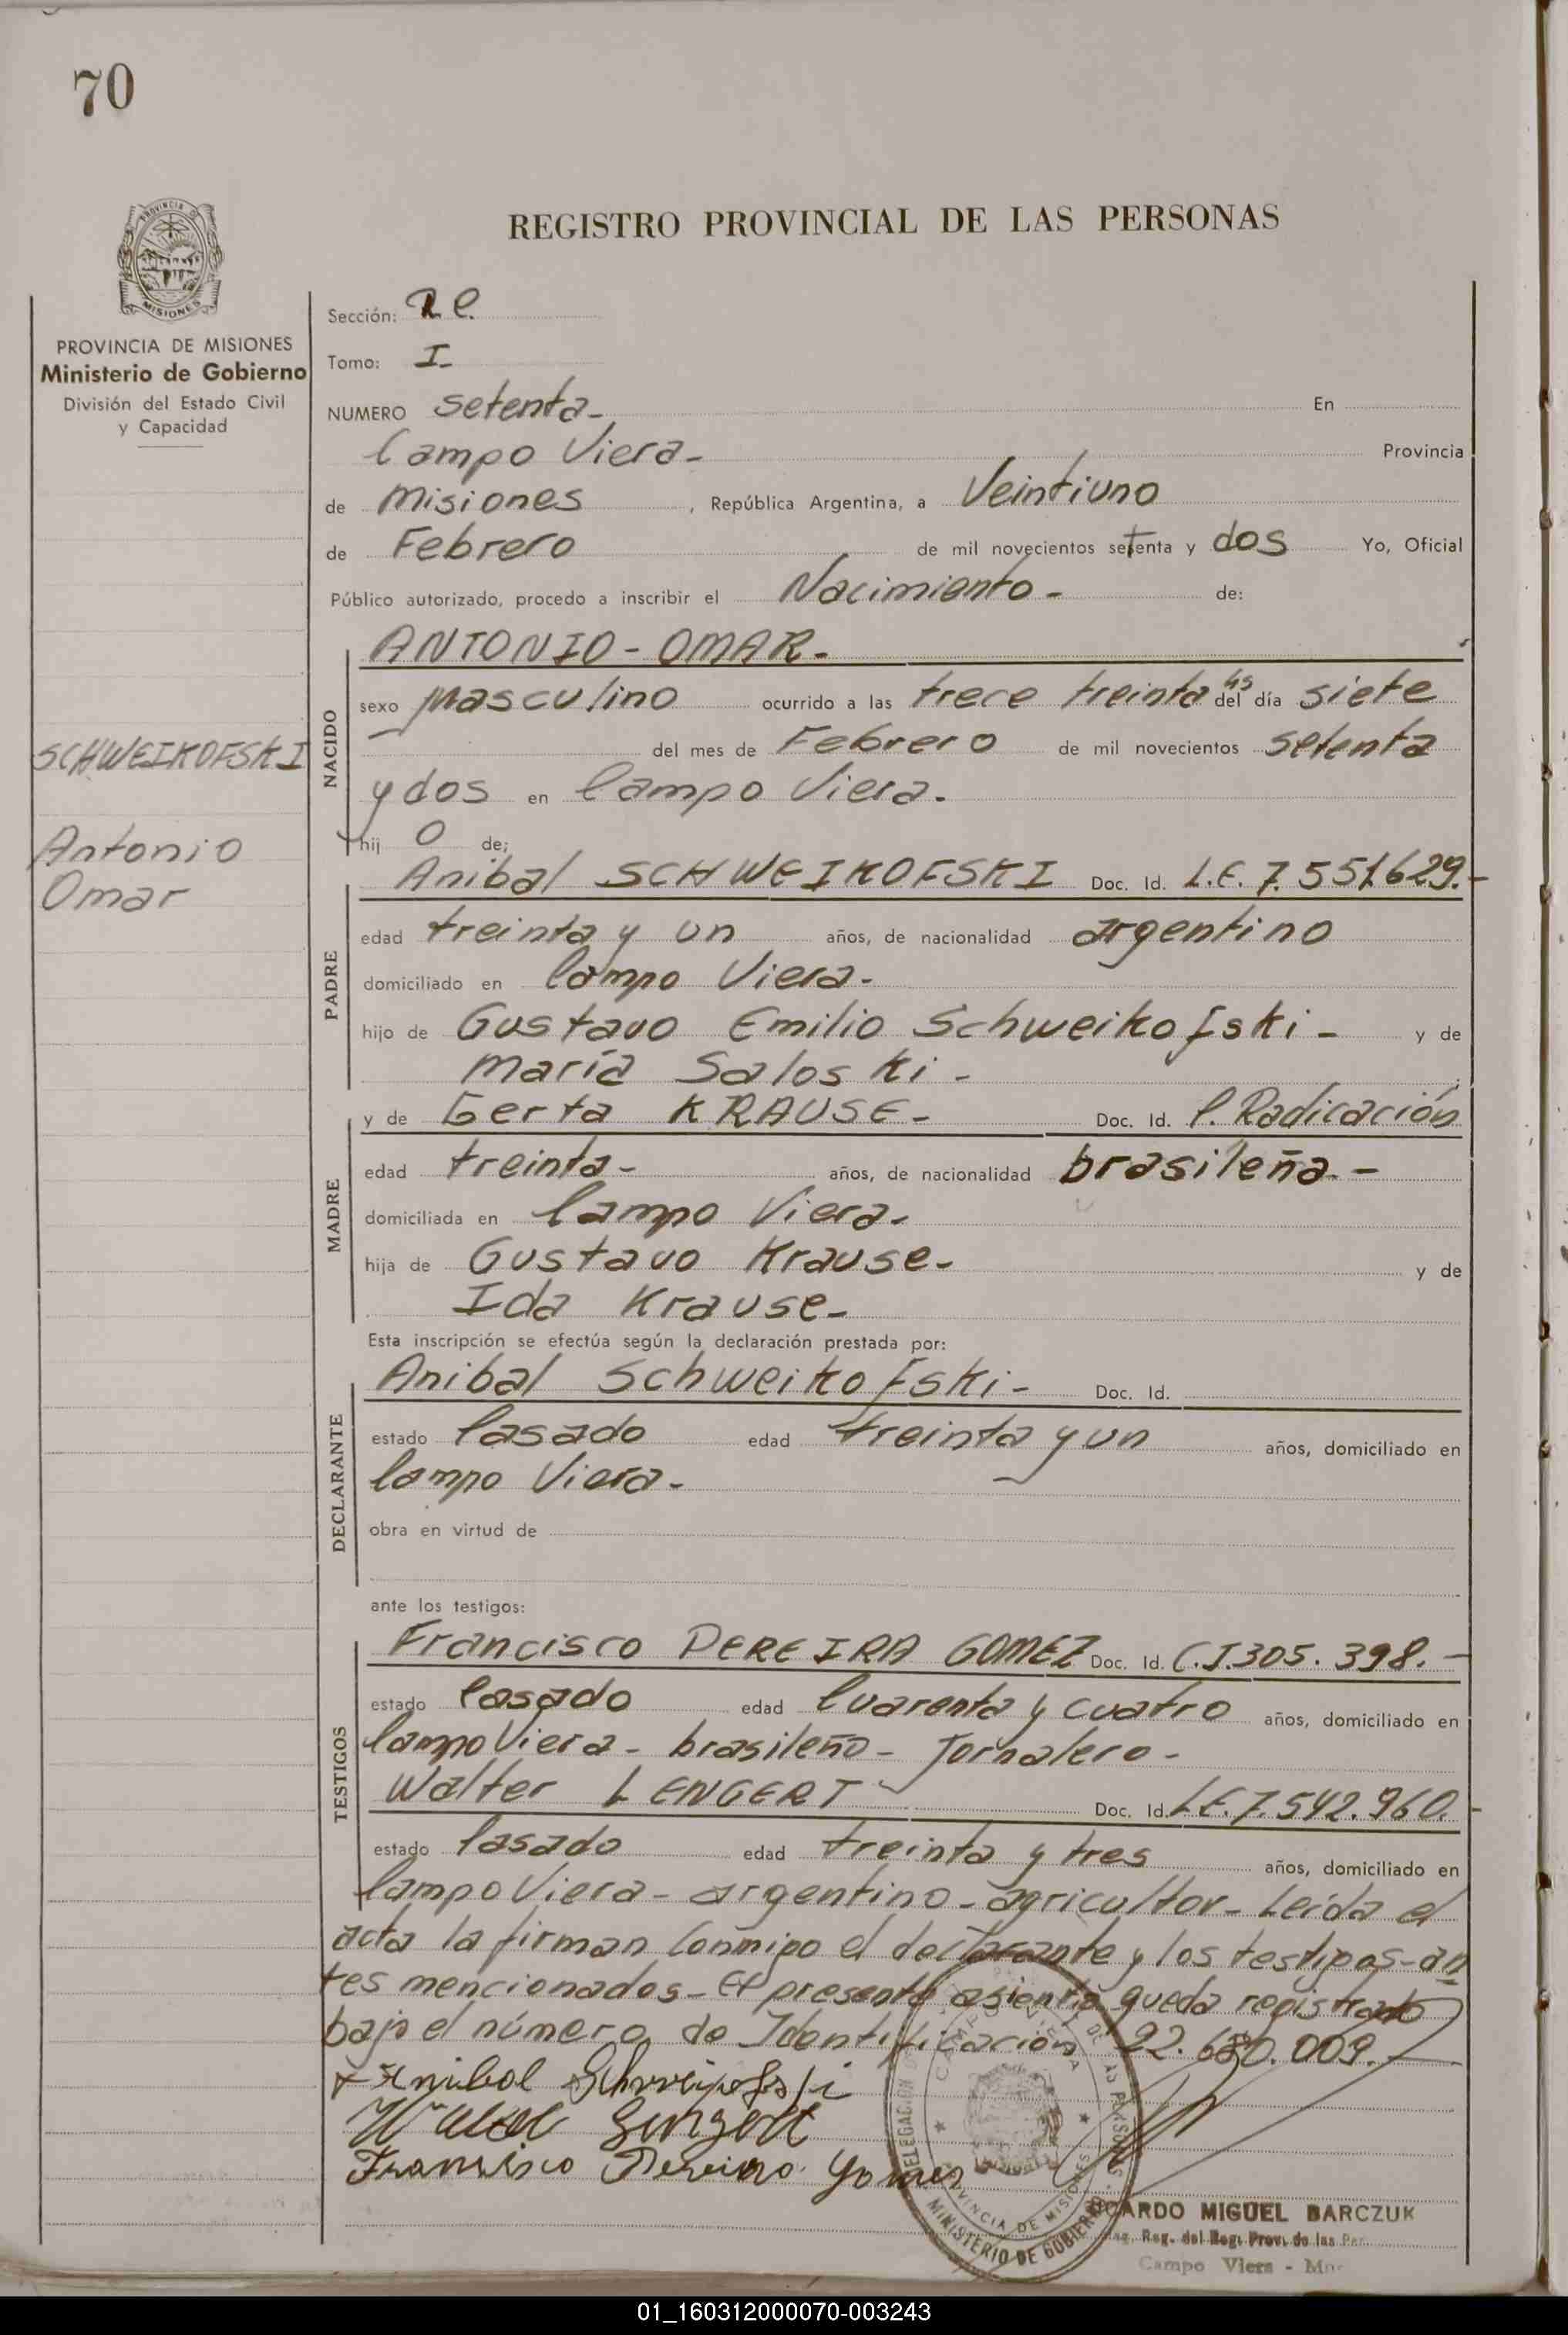 70
PROVINCIA DE
MISIONES
PROVINCIA DE MISIONES
Ministerio de Gobierno
División del Estado Civil
y Capacidad
SCHWEIKOFSKI
Antonio
Omar
REGISTRO PROVINCIAL DE LAS PERSONAS
Sección:
Tomo: I-
NUMERO setenta- En
Campo Viera- Provincia
de Misiones , República Argentina, a Veintiuno
de Febrero de mil novecientos setenta y dos Yo, Oficial
Público autorizado, procedo a inscribir el Nacimiento- de:
ANTONIO-OMAR-
NACIDO
sexo Masculino ocurrido a las trece treinta hs del día siete
del mes de Febrero de mil novecientos setenta
y dos en Campo Viera.
hij o de;
PADRE
Anibal SCHWEIKOFSKI Doc. Id. L.E. 7.551.629.-
edad treinta y un años, de nacionalidad argentino
domiciliado en Campo Viera-
hijo de Gustavo Emilio Schweikofski- y de
María Saloski-
MADRE
y de Gerta KRAUSE- Doc. Id. C. Radicación
edad treinta- años, de nacionalidad brasileña.-
domiciliada en Campo Viera-
hija de Gustavo Krause- y de
Ida Krause-
Esta inscripción se efectúa según la declaración prestada por:
DECLARANTE
Anibal Schweikofski- Doc. Id.
estado Casado edad treinta y un años, domiciliado en
Campo Viera-
obra en virtud de
ante los testigos:
TESTIGOS
Francisco PEREIRA GOMEZ Doc. Id. C.I.305.398.-
estado Casado edad Cuarenta y cuatro años, domiciliado en
Campo Viera- brasileño- Jornalero-
Walter LENGERT Doc. Id. L.E.7.542.960.-
estado Casado edad treinta y tres años, domiciliado en
Campo Viera- argentino- agricultor- Leída el
acta la firman Conmigo el declarante y los testigos-an
tes mencionados- El presente asiento queda registrado
bajo el número de Identificación 22.680.009.-
Anibal
Francisco Pereira Gomes
DELEGACIÓN
CAMPO VIERA
PROVINCIA DE MISIONES
MINISTERIO DE GOBIERNO
CARDO MIGUEL BARCZUK
Reg. del Reg. Prov. de las Per
Campo Viera -
01_160312000070-003243